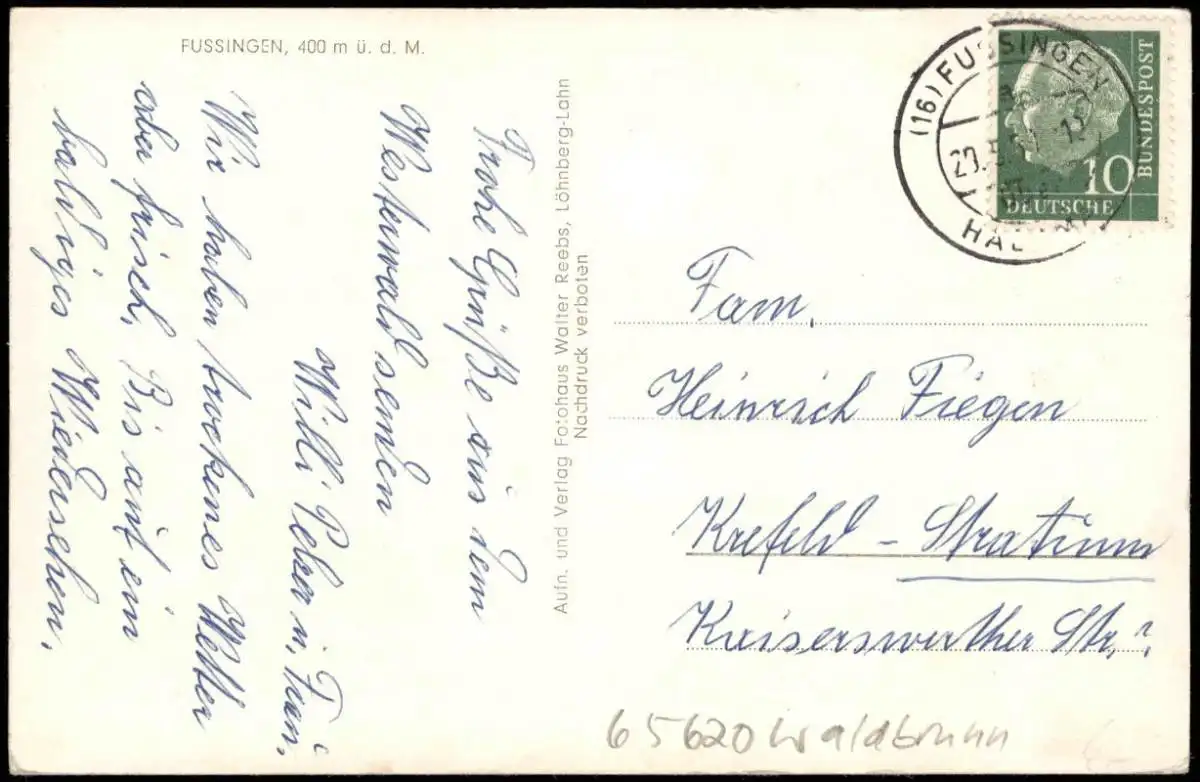 FUSSINGEN, 400 m ü. d. M.
Frohe Grüße aus dem
Westerwald senden
Willi u. Fam.
Wir haben trockenes Wetter
aber frisch, Bis auf ein
baldiges Wiedersehen.
Aufn. und Verlag Fotohaus Walter Reebs, Löhnberg-Lahn
Nachdruck verboten
(16) FUSSINGEN
DEUTSCHE
BUNDESPOST
10
Fam.
Heinrich Fiegen
Krefeld - Stratum
Kaiserswerther Str. ?
65620 Waldbrunn